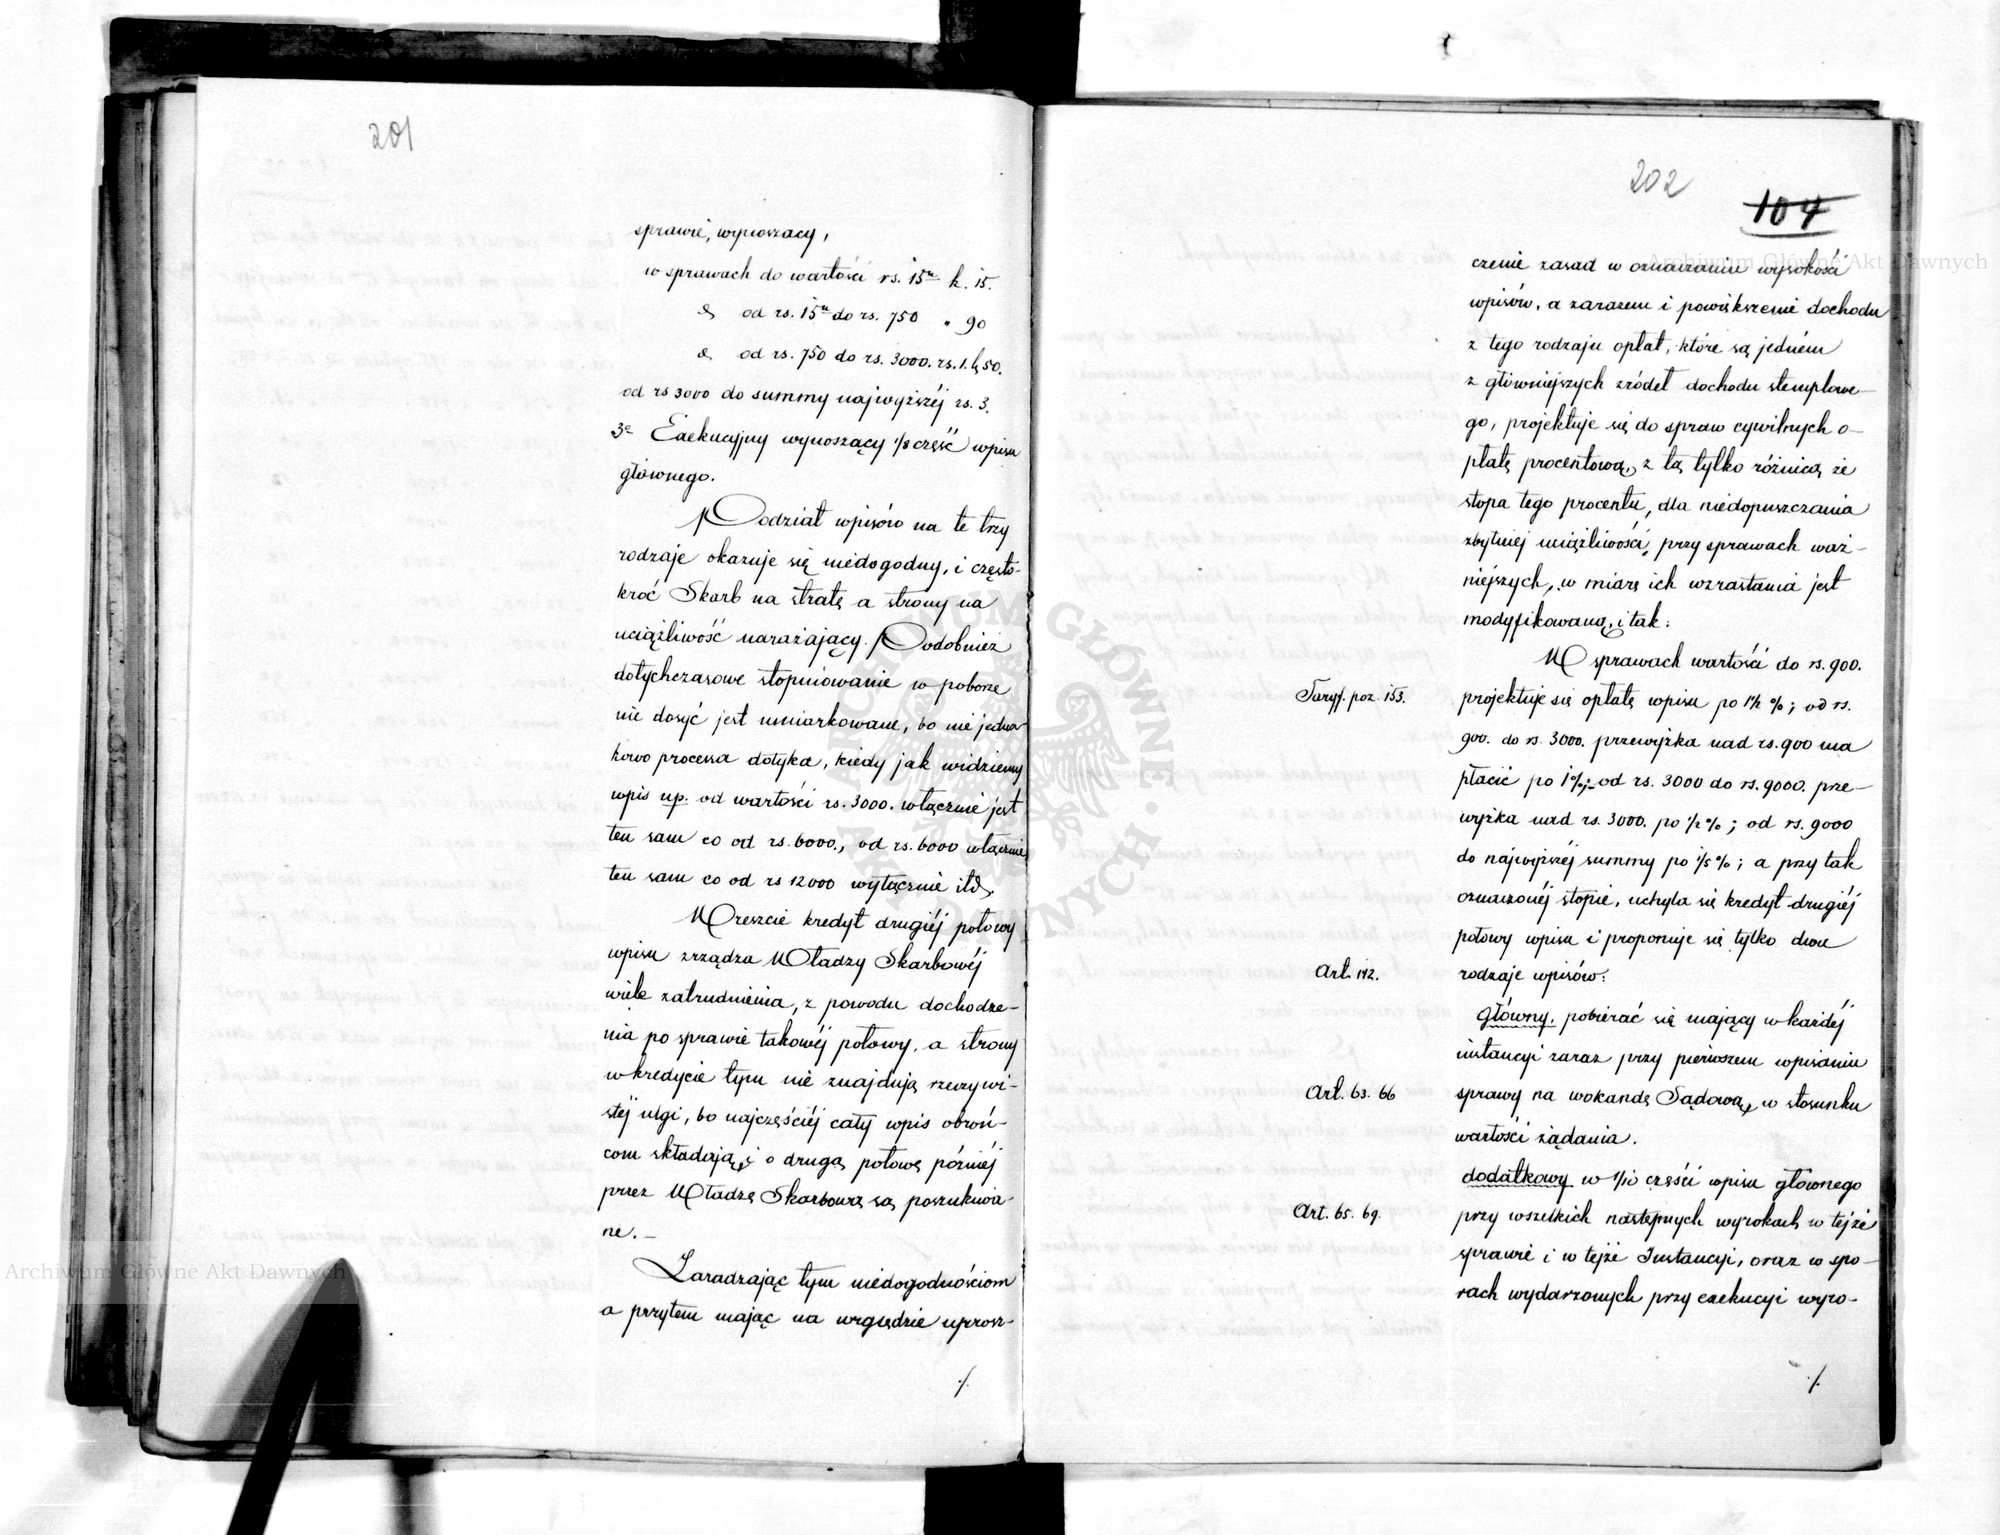 201
sprawie, wynoszący,
w sprawach do wartości rs. 15tu k. 15.
d° od rs. 15tu do rs. 750 " 90
d° od rs. 750 do rs. 3000. rs. 1. k 50.
od rs 3000 do summy najwyższéj rs. 3.
3e Exekucyjny wynoszący 1/8 część wpisu
głównego.
Podział wpisów na te trzy
rodzaje okazuje się niedogodny, i często-
kroć Skarb na stratę a strony na
uciążliwość narażający. Podobnież
dotychczasowe stopniowanie w poborze
nie dosyć jest umiarkowane, bo nie jedna-
kowo processa dotyka, kiedy jak widziemy
wpis np. od wartości rs. 3000. włącznie jest
ten sam co od rs. 6000., od rs. 6000 włącznie
ten sam co od rs 12000 wyłącznie itd.
Wreszcie kredyt drugiéj połowy
wpisu zrządza Władzy Skarbowéj
wiele zatrudnienia, z powodu dochodze-
nia po sprawie takowéj połowy, a strony
w kredycie tym nie znajdują rzeczywi-
stéj ulgi, bo najczęściéj cały wpis obroń-
com składają, i o drugą połowę późniéj
przez Władzę Skarbową są poszukiwa-
ne. —
Zaradzając tym niedogodnościom
a przytem mając na względzie uprosz-
./.
202
104
czenie zasad w oznaczaniu wysokości
wpisów, a zarazem i powiększenie dochodu
z tego rodzaju opłat, które są jedném
z główniejszych źródeł dochodu stemplowe-
go, projektuje się do spraw cywilnych o-
płatę procentową, z tą tylko różnicą że
stopa tego procentu, dla niedopuszczania
zbytniej uciążliwości, przy sprawach waż-
niejszych, w miarę ich wzrastania jest
modyfikowaną, i tak:
W sprawach wartości do rs. 900.
Taryf. poz. 153.
projektuje się opłatę wpisu po 1 1/2 %; od rs.
900. do rs. 3000. przewyżka nad rs. 900 ma
płacić po 1%; od rs. 3000 do rs. 9000. prze-
wyżka nad rs. 3000. po 1/2 %; od rs. 9000
do najwyższéj summy po 1/5 %; a przy tak
oznaczonéj stopie, uchyla się kredyt drugiéj
połowy wpisu i proponuje się tylko dwa
Art. 142.
rodzaje wpisów:
Główny, pobierać się mający w każdéj
instancyi zaraz przy pierwszem wpisaniu
Art. 63. 66
sprawy na wokandę Sądową, w stosunku
wartości żądania.
dodatkowy w 1/10 części wpisu głównego
Art. 65. 69.
przy wszelkich następnych wyrokach w tejże
sprawie i w tejże Instancyi, oraz w spo-
rach wydarzonych przy exekucyi wyro-
./.
Archiwum Główne Akt Dawnych
Archiwum Główne Akt Dawnych